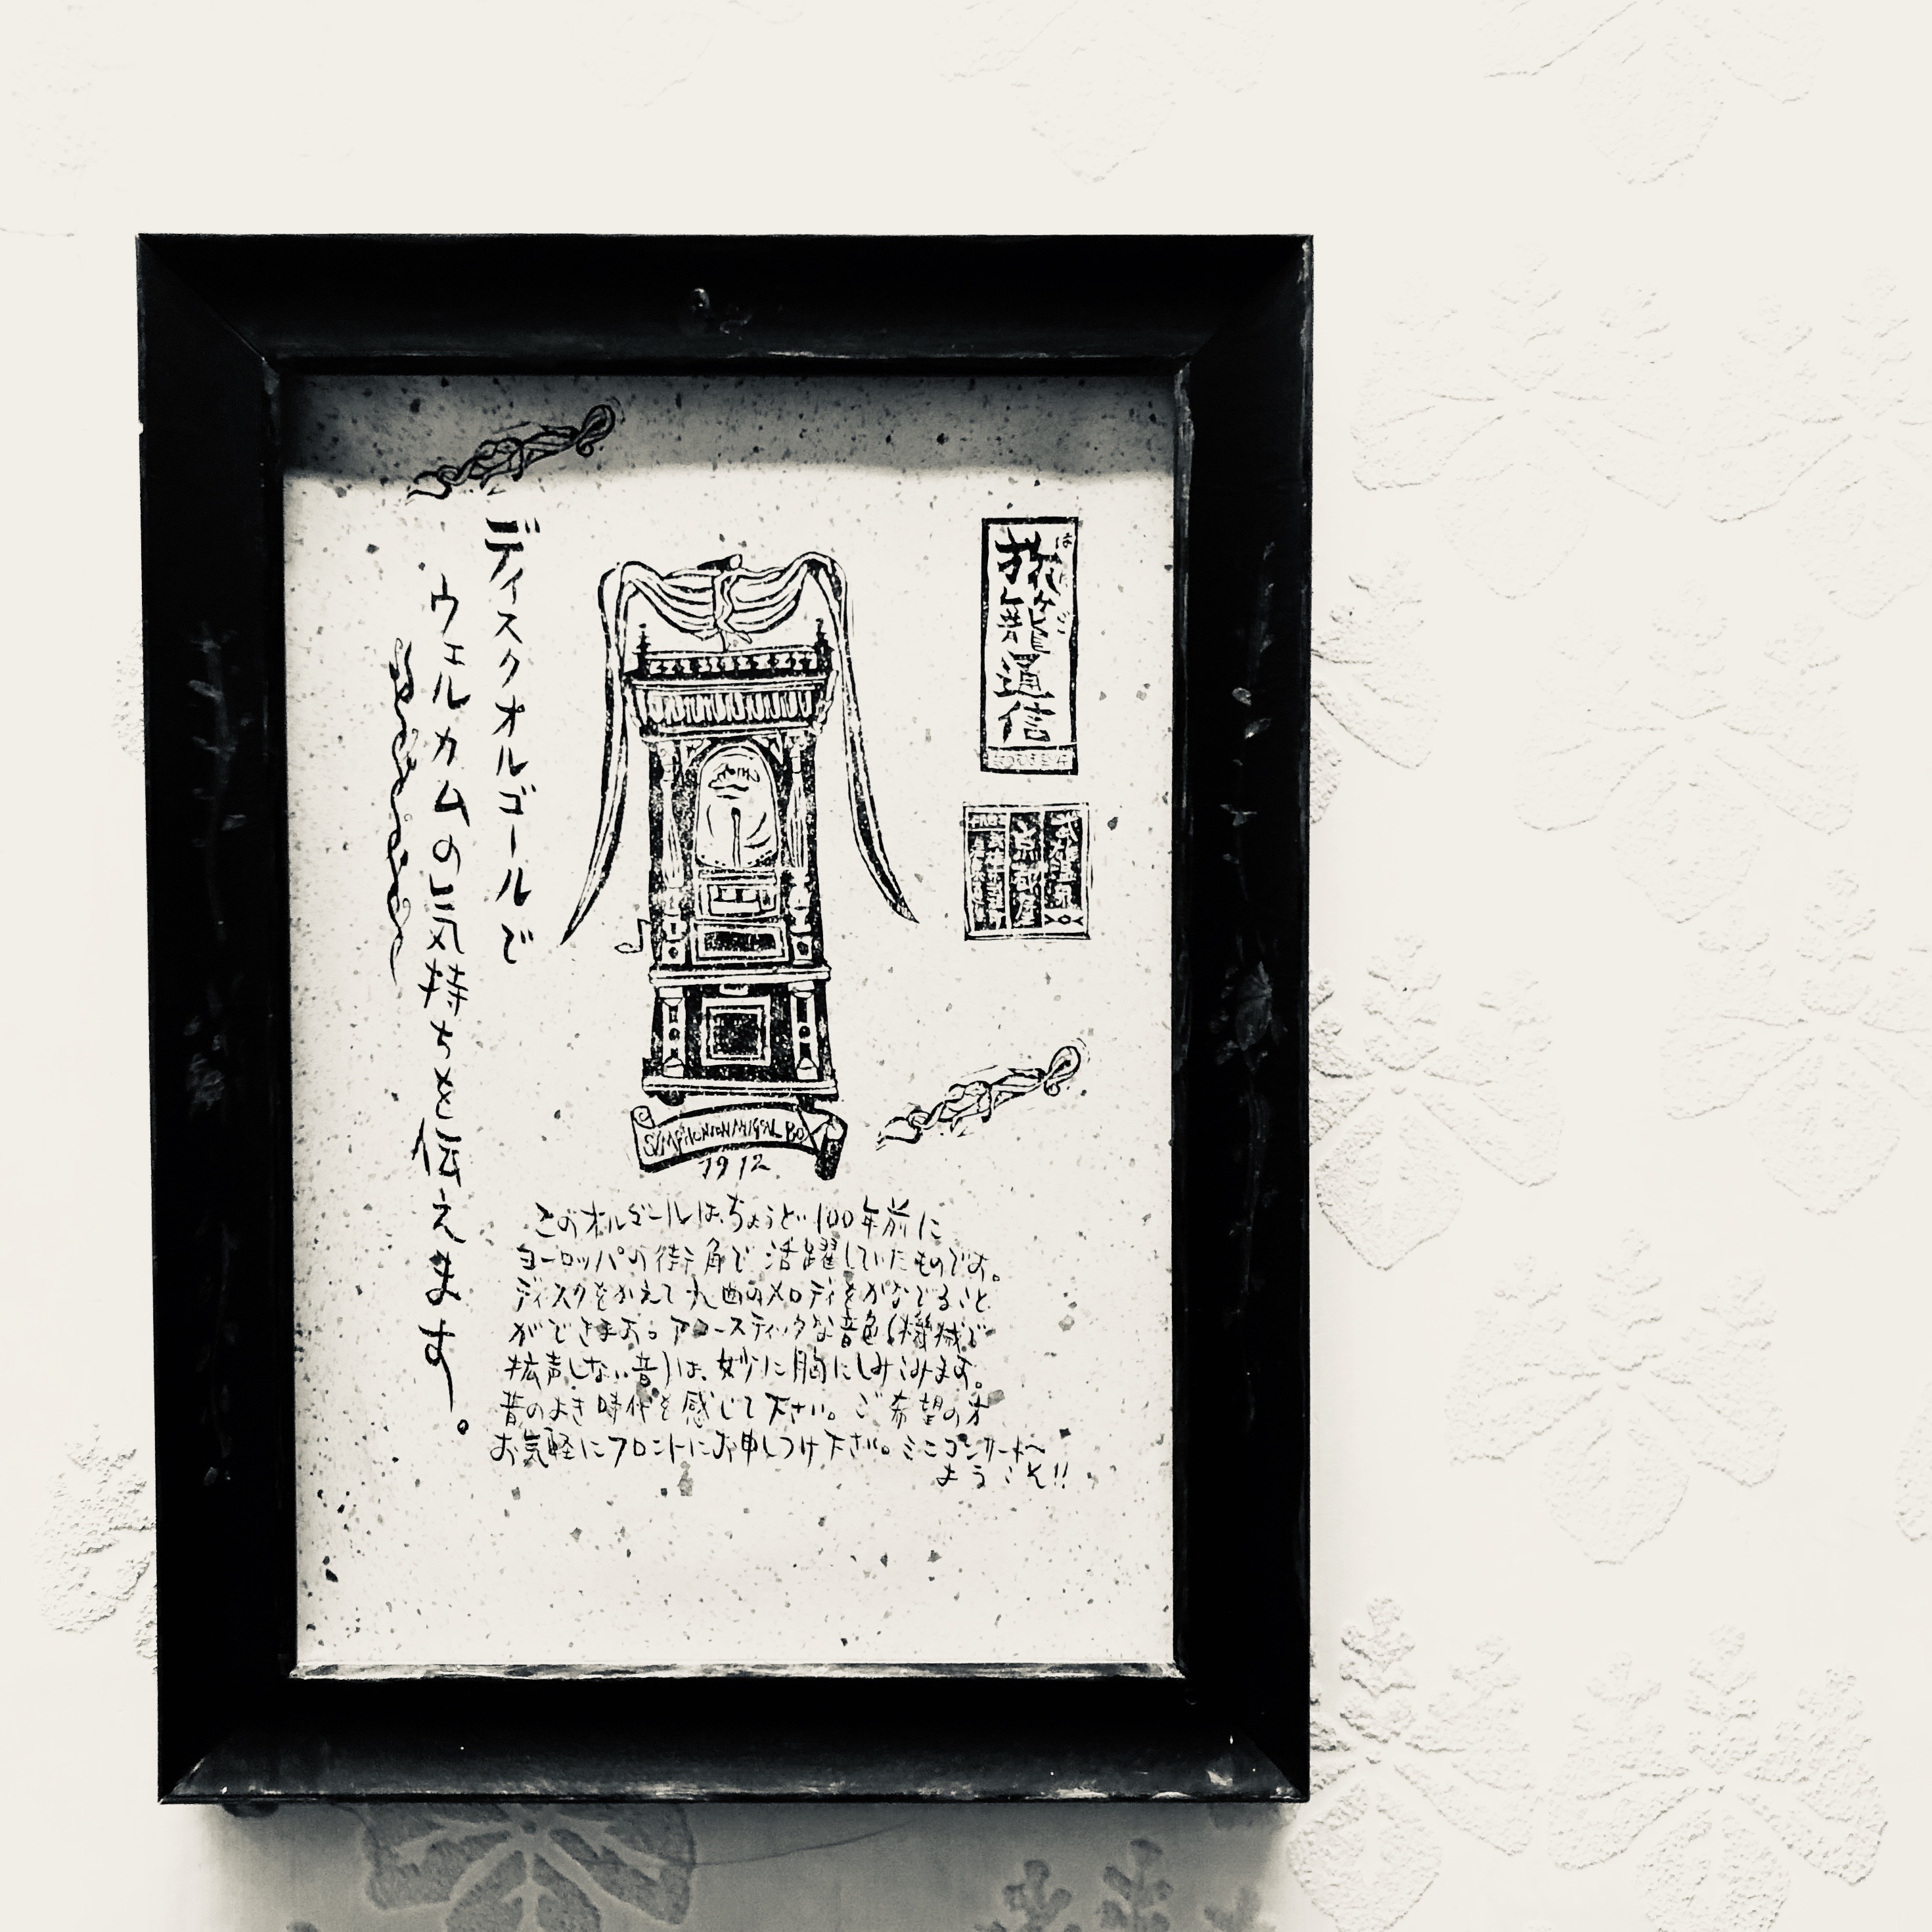 旅籠通信
ディスクオルゴールで
ウェルカムの気持ちを伝えます。
SIMPHONION MUSICAL BOX
1912
このオルゴールは、ちょうど100年前に
ヨーロッパの街角で活躍していたものです。
ディスクをかえて九曲のメロディをかなでること
ができます。アコースティックな音色(機械で
拡声しない音)は、妙に胸にしみこみます。
昔のよき時代を感じて下さい。ご希望の方
お気軽にフロントにお申しつけ下さい。ミニコンサートへ
ようこそ!!